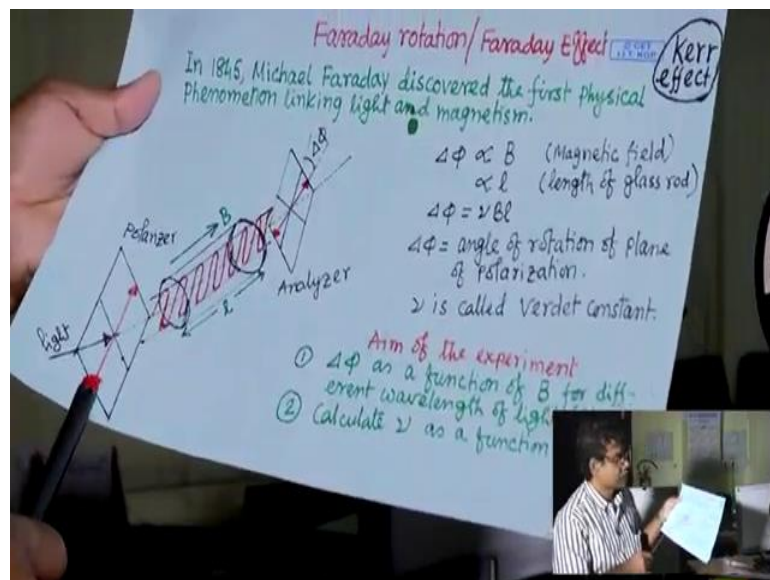 Faraday rotation/Faraday Effect
Kerr
effect
In 1845, Michael Faraday discovered the first physical
Phenomenon linking light and magnetism.
ΔΦ ∝ B (Magnetic field)
∝ l (length of glass rod)
ΔΦ = νBl
ΔΦ = angle of rotation of plane
of polarization.
ν is called Verdet Constant.
ΔΦ
B
Polarizer
l
Analyzer
light
Aim of the experiment
① ΔΦ as a function of B for diff-
erent wavelength of light
② Calculate ν as a function